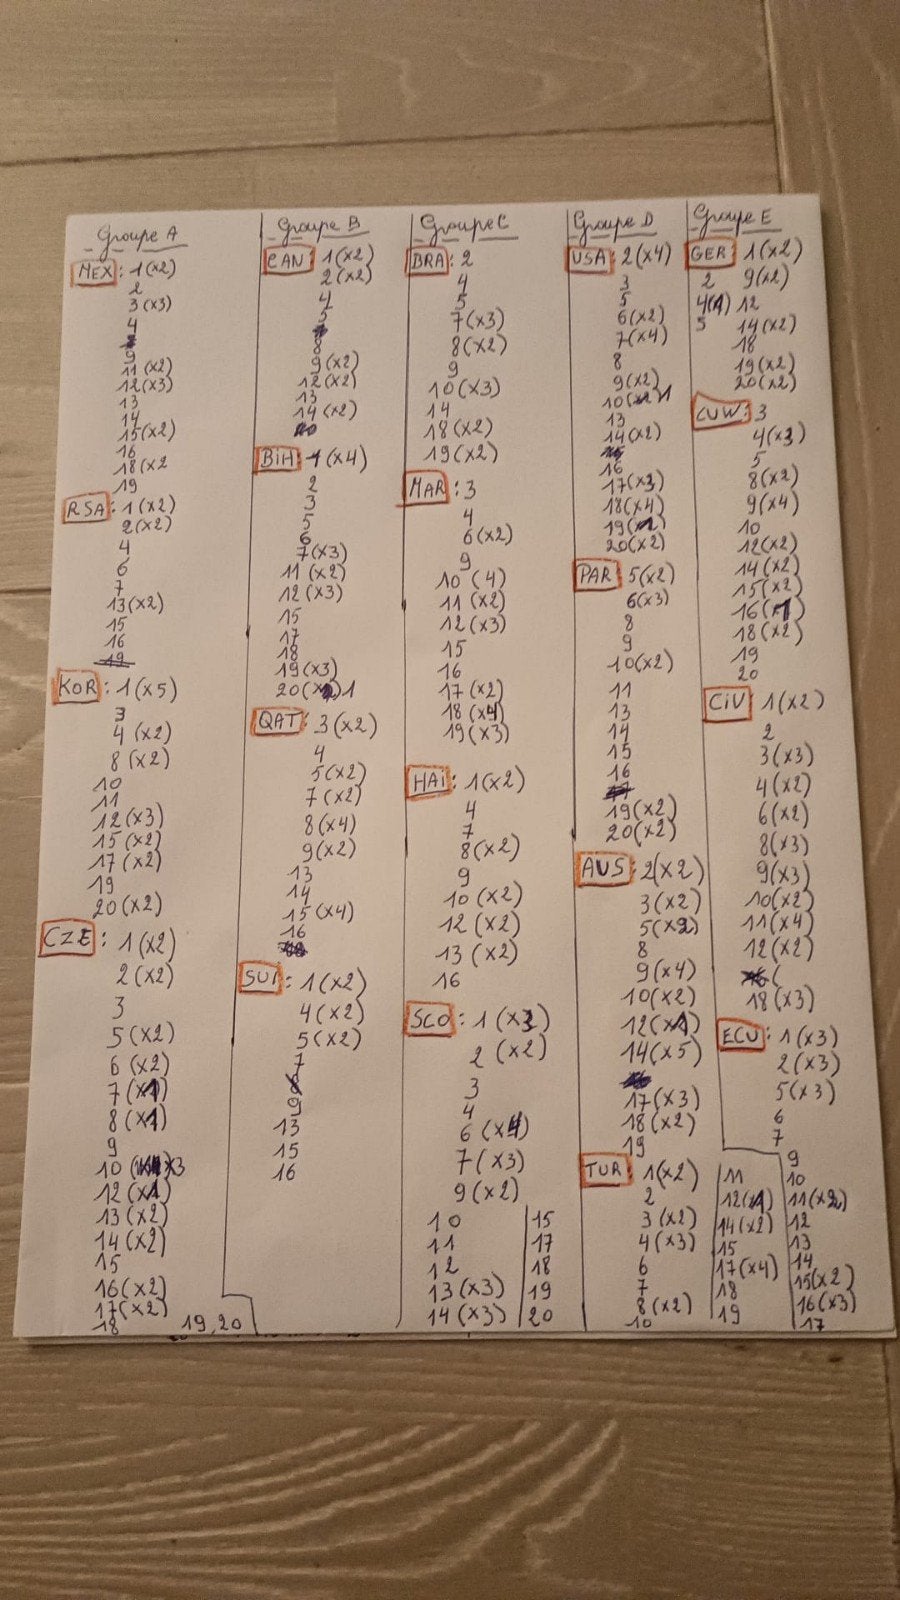 Groupe A
MEX : 1(x2)
2
3(x3)
4
9
11(x2)
12(x3)
13
14
15(x2)
16
18(x2
19
RSA : 1(x2)
2(x2)
4
6
7
13(x2)
15
16
19
KOR : 1(x5)
3
4(x2)
8(x2)
10
11
12(x3)
15(x2)
17(x2)
19
20(x2)
CZE : 1(x2)
2(x2)
3
5(x2)
6(x2)
7(x1)
8(x1)
9
10 x3
12(x1)
13(x2)
14(x2)
15
16(x2)
17(x2)
18 19,20
Groupe B
CAN : 1(x2)
2(x2)
4
5
8
9(x2)
12(x2)
13
14(x2)
BiH : 1(x4)
2
3
5
6
7(x3)
11(x2)
12(x3)
15
17
18
19(x3)
20(x )1
QAT : 3(x2)
4
5(x2)
7(x2)
8(x4)
9(x2)
13
14
15(x4)
16
SUi : 1(x2)
4(x2)
5(x2)
7
9
13
15
16
Groupe C
BRA : 2
4
5
7(x3)
8(x2)
9
10(x3)
14
18(x2)
19(x2)
MAR : 3
4
6(x2)
9
10(4)
11(x2)
12(x3)
15
16
17(x2)
18(x4)
19(x3)
HAi : 1(x2)
4
7
8(x2)
9
10(x2)
12(x2)
13(x2)
16
SCO : 1(x3)
2(x2)
3
4
6(x4)
7(x3)
9(x2)
10
11
12
13(x3)
14(x3)
15
17
18
19
20
Groupe D
USA : 2(x4)
3
5
6(x2)
7(x4)
8
9(x2)
10(x2)1
13
14(x2)
16
17(x3)
18(x4)
19(x2)
20(x2)
PAR : 5(x2)
6(x3)
8
9
10(x2)
11
13
14
15
16
19(x2)
20(x2)
AUS : 2(x2)
3(x2)
5(x2)
8
9(x4)
10(x2)
12(x1)
14(x5)
17(x3)
18(x2)
19
TUR : 1(x2)
2
3(x2)
4(x3)
6
7
8(x2)
10
11
12(x1)
14(x2)
15
17(x4)
18
19
Groupe E
GER : 1(x2)
2
4(1)
5
9(x2)
12
14(x2)
18
19(x2)
20(x2)
CUW : 3
4(x3)
5
8(x2)
9(x4)
10
12(x2)
14(x2)
15(x2)
16(x1)
18(x2)
19
20
CiV : 1(x2)
2
3(x3)
4(x2)
6(x2)
8(x3)
9(x3)
10(x2)
11(x4)
12(x2)
18(x3)
ECU : 1(x3)
2(x3)
5(x3)
6
7
9
10
11(x2)
12
13
14
15(x2)
16(x3)
17